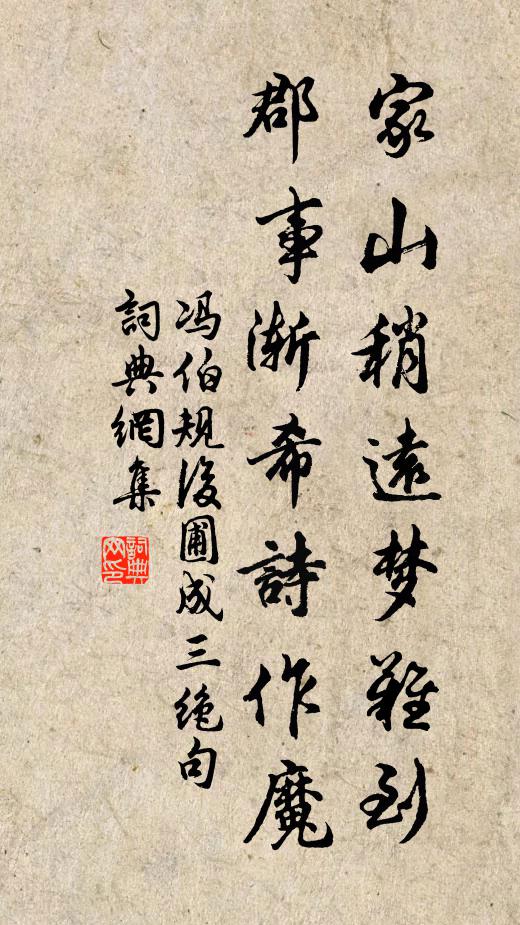 家山稍遠梦難到
郡事渐希詩作魔
冯伯規後圃成三绝句
詞典網集
詞典网印